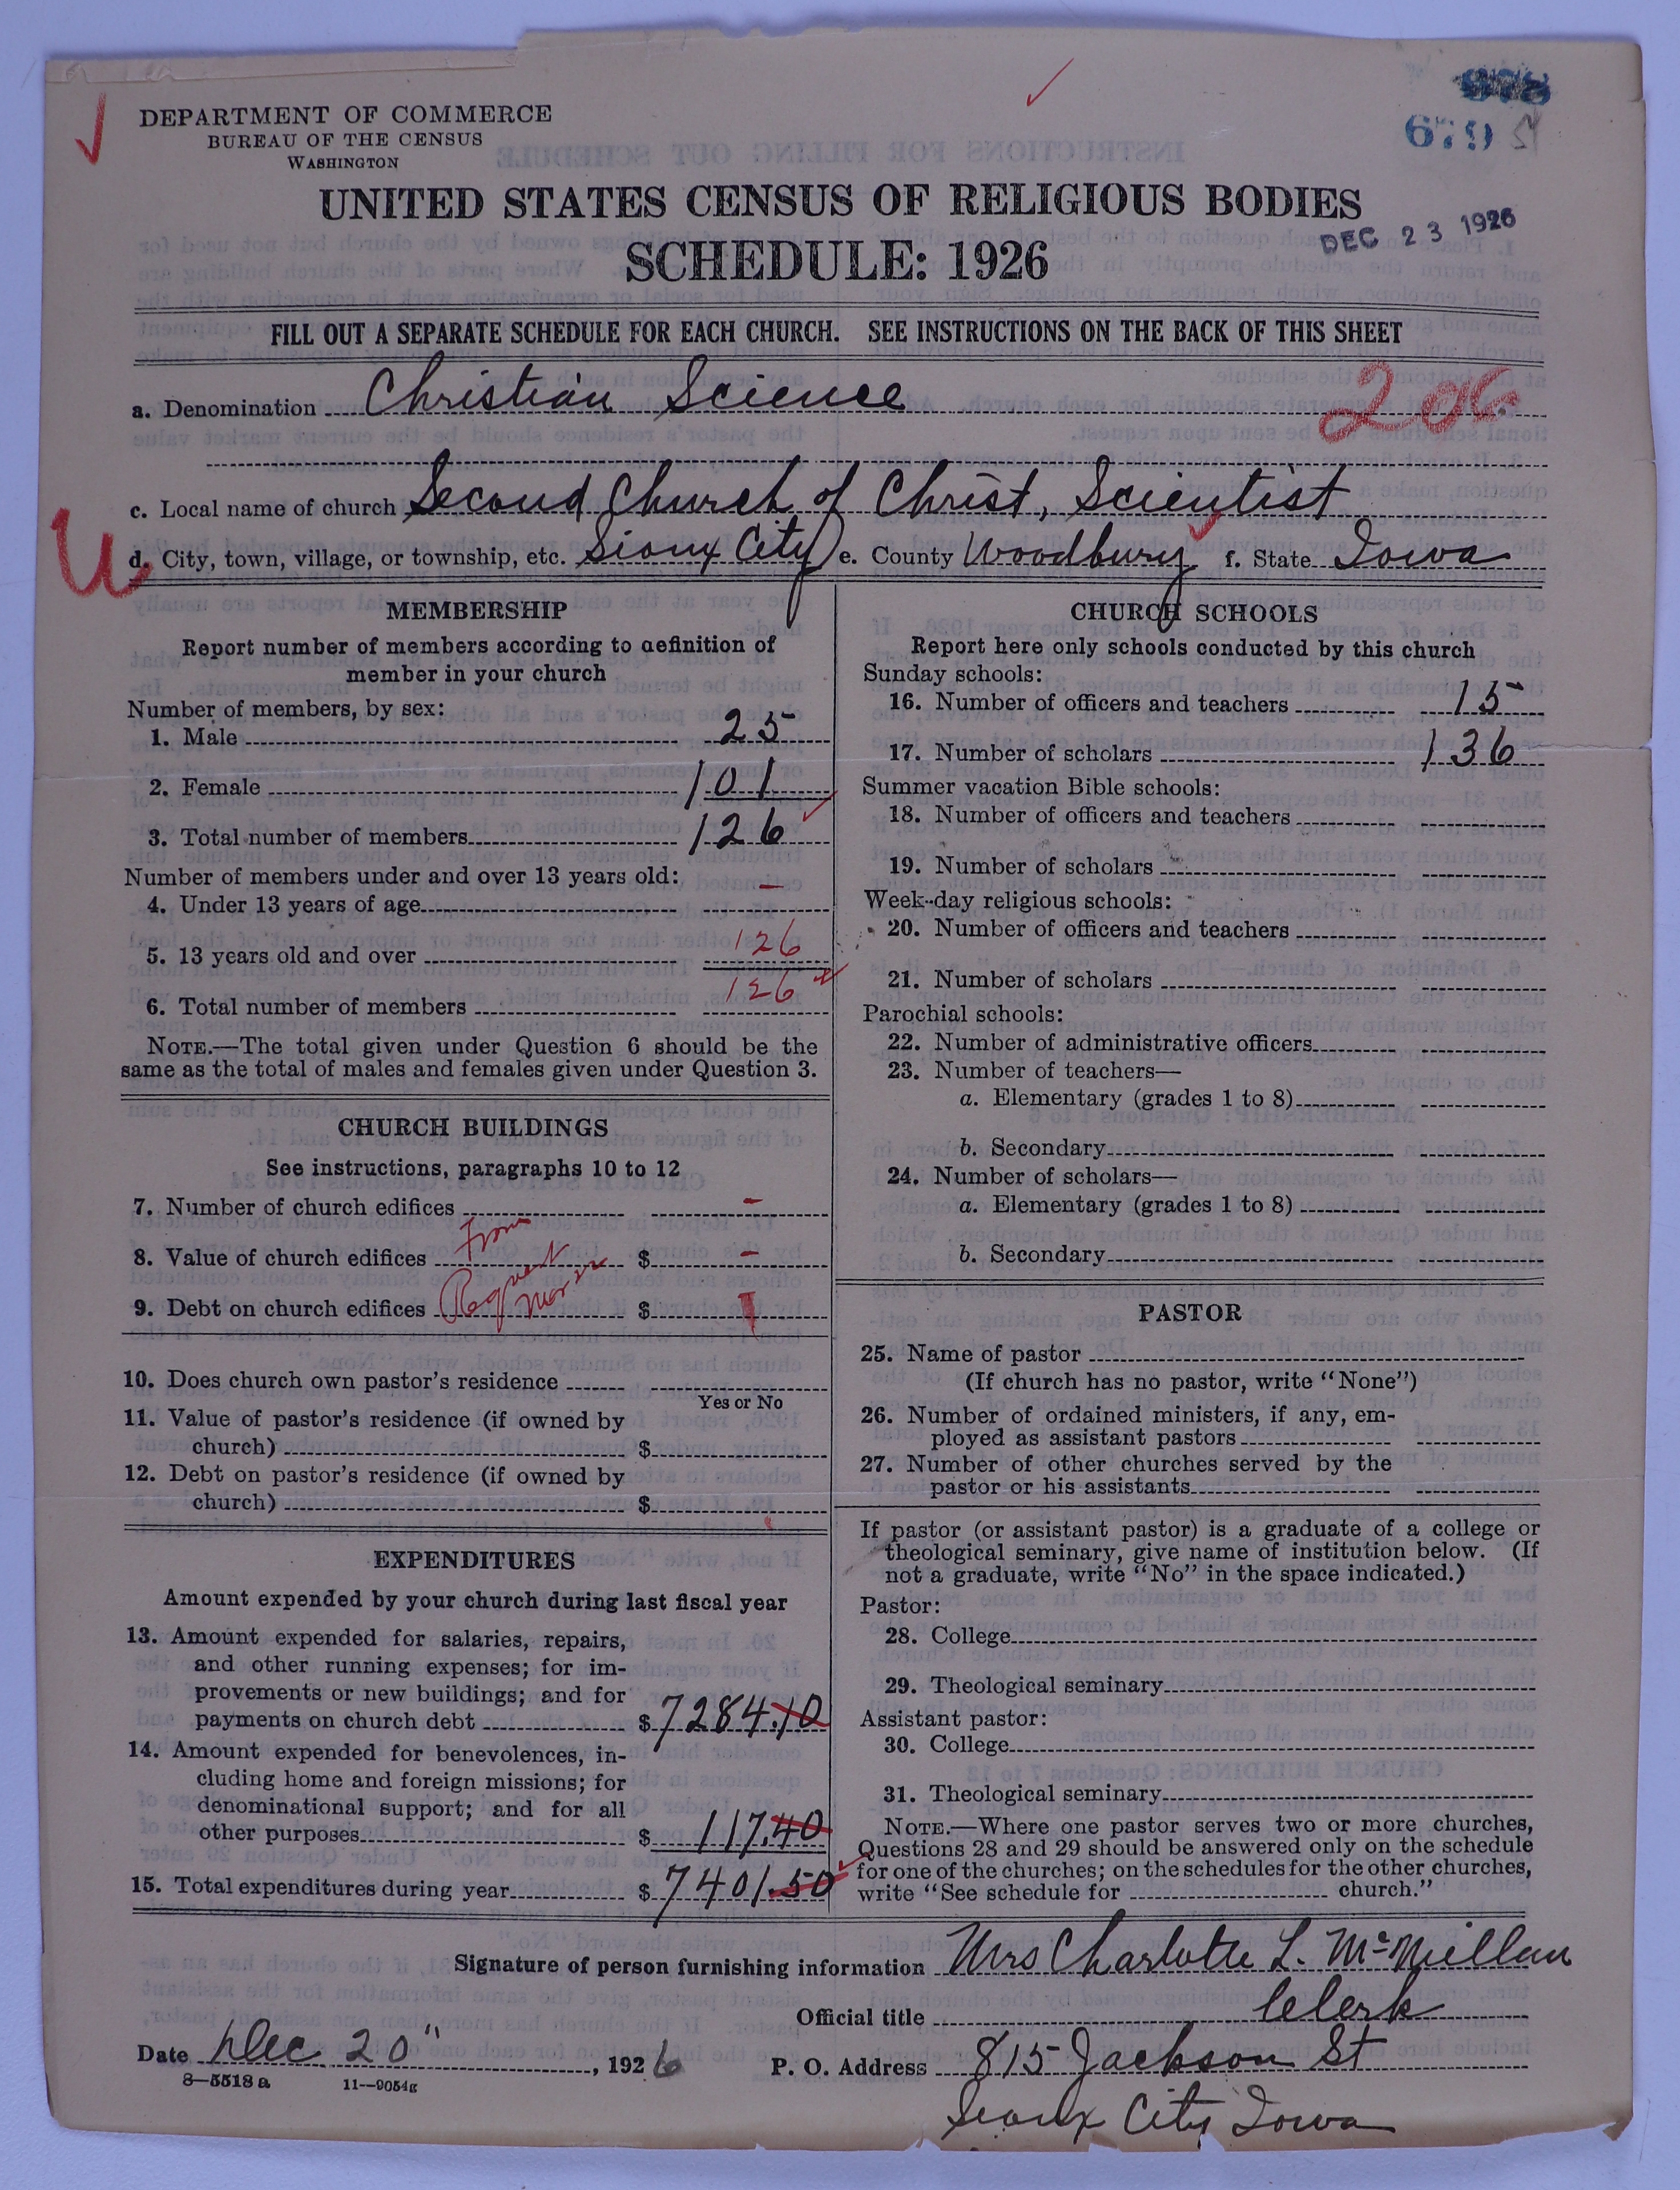 DEPARTMENT OF COMMERCE
BUREAU OF THE CENSUS
WASHINGTON
679
UNITED STATES CENSUS OF RELIGIOUS BODIES
SCHEDULE: 1926
DEC 23 1926
FILL OUT A SEPARATE SCHEDULE FOR EACH CHURCH. SEE INSTRUCTIONS ON THE BACK OF THIS SHEET
a. Denomination Christian Science
206
c. Local name of church Second Church of Christ, Scientist
U
d. City, town, village, or township, etc. Sioux City e. County Woodbury f. State Iowa
MEMBERSHIP
Report number of members according to definition of
member in your church
Number of members, by sex:
1. Male 25
2. Female 101
3. Total number of members 126
Number of members under and over 13 years old:
4. Under 13 years of age –
5. 13 years old and over 126
6. Total number of members 126
NOTE.—The total given under Question 6 should be the
same as the total of males and females given under Question 3.
CHURCH BUILDINGS
See instructions, paragraphs 10 to 12
7. Number of church edifices –
From
8. Value of church edifices $ –
9. Debt on church edifices $
10. Does church own pastor's residence
Yes or No
11. Value of pastor's residence (if owned by
church) $
12. Debt on pastor's residence (if owned by
church) $
EXPENDITURES
Amount expended by your church during last fiscal year
13. Amount expended for salaries, repairs,
and other running expenses; for im-
provements or new buildings; and for
payments on church debt $ 7284.10
14. Amount expended for benevolences, in-
cluding home and foreign missions; for
denominational support; and for all
other purposes $ 117.40
15. Total expenditures during year $ 7401.50
CHURCH SCHOOLS
Report here only schools conducted by this church
Sunday schools:
16. Number of officers and teachers 15
17. Number of scholars 136
Summer vacation Bible schools:
18. Number of officers and teachers
19. Number of scholars
Week-day religious schools:
20. Number of officers and teachers
21. Number of scholars
Parochial schools:
22. Number of administrative officers
23. Number of teachers—
a. Elementary (grades 1 to 8)
b. Secondary
24. Number of scholars—
a. Elementary (grades 1 to 8)
b. Secondary
PASTOR
25. Name of pastor
(If church has no pastor, write "None")
26. Number of ordained ministers, if any, em-
ployed as assistant pastors
27. Number of other churches served by the
pastor or his assistants
If pastor (or assistant pastor) is a graduate of a college or
theological seminary, give name of institution below. (If
not a graduate, write "No" in the space indicated.)
Pastor:
28. College
29. Theological seminary
Assistant pastor:
30. College
31. Theological seminary
NOTE.—Where one pastor serves two or more churches,
Questions 28 and 29 should be answered only on the schedule
for one of the churches; on the schedules for the other churches,
write "See schedule for church."
Signature of person furnishing information Mrs Charlotte L. McMillan
Official title Clerk
Date Dec 20", 1926 P. O. Address 815 Jackson St
8—5518a 11—9054g
Sioux City Iowa